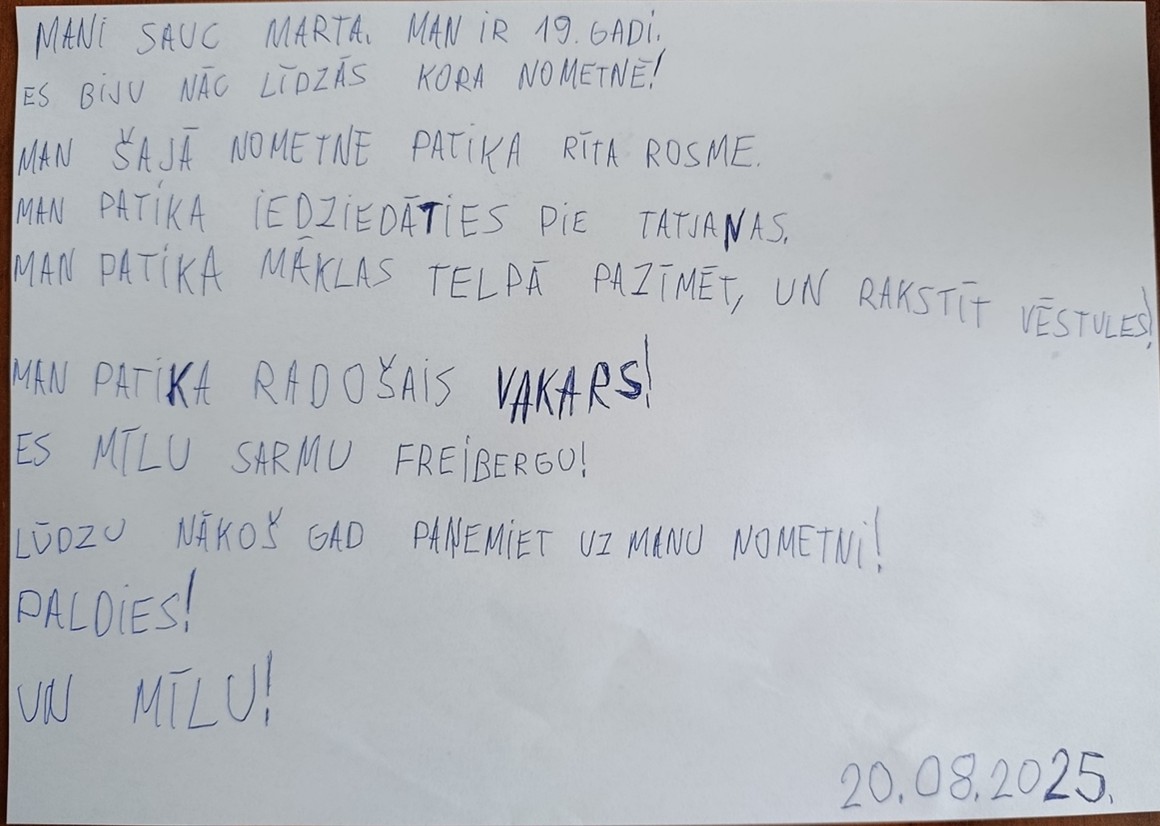 MANi SAUC MARTA. MAN iR 19. GADi.
ES BiJU NĀC LĪDZĀS KORA NOMETNĒ!
MAN ŠAJĀ NOMETNĒ PATiKA RĪTA ROSME.
MAN PATiKA iEDZiEDĀTiES PiE TATJANAS.
MAN PATiKA MĀKLAS TELPĀ PAZĪMĒT, UN RAKSTĪT VĒSTULES!
MAN PATiKA RADOŠAiS VAKARS!
ES MĪLU SARMU FREiBERGU!
LŪDZU NĀKOŠ GAD PAŅEMiET UZ MANU NOMETNi!
PALDiES!
UN MĪLU!
20.08.2025.